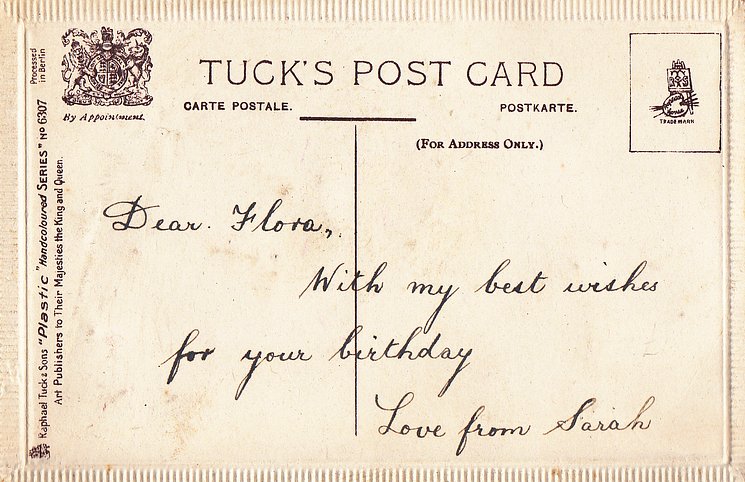 Processed
in Berlin
Raphael Tuck & Sons "Plastic" Handcoloured SERIES" No 6307
Art Publishers to Their Majesties the King and Queen.
By Appointment.
TUCK'S POST CARD
CARTE POSTALE.
POSTKARTE.
(For Address Only.)
TRADE MARK
Dear Flora,
With my best wishes
for your birthday
Love from Sarah